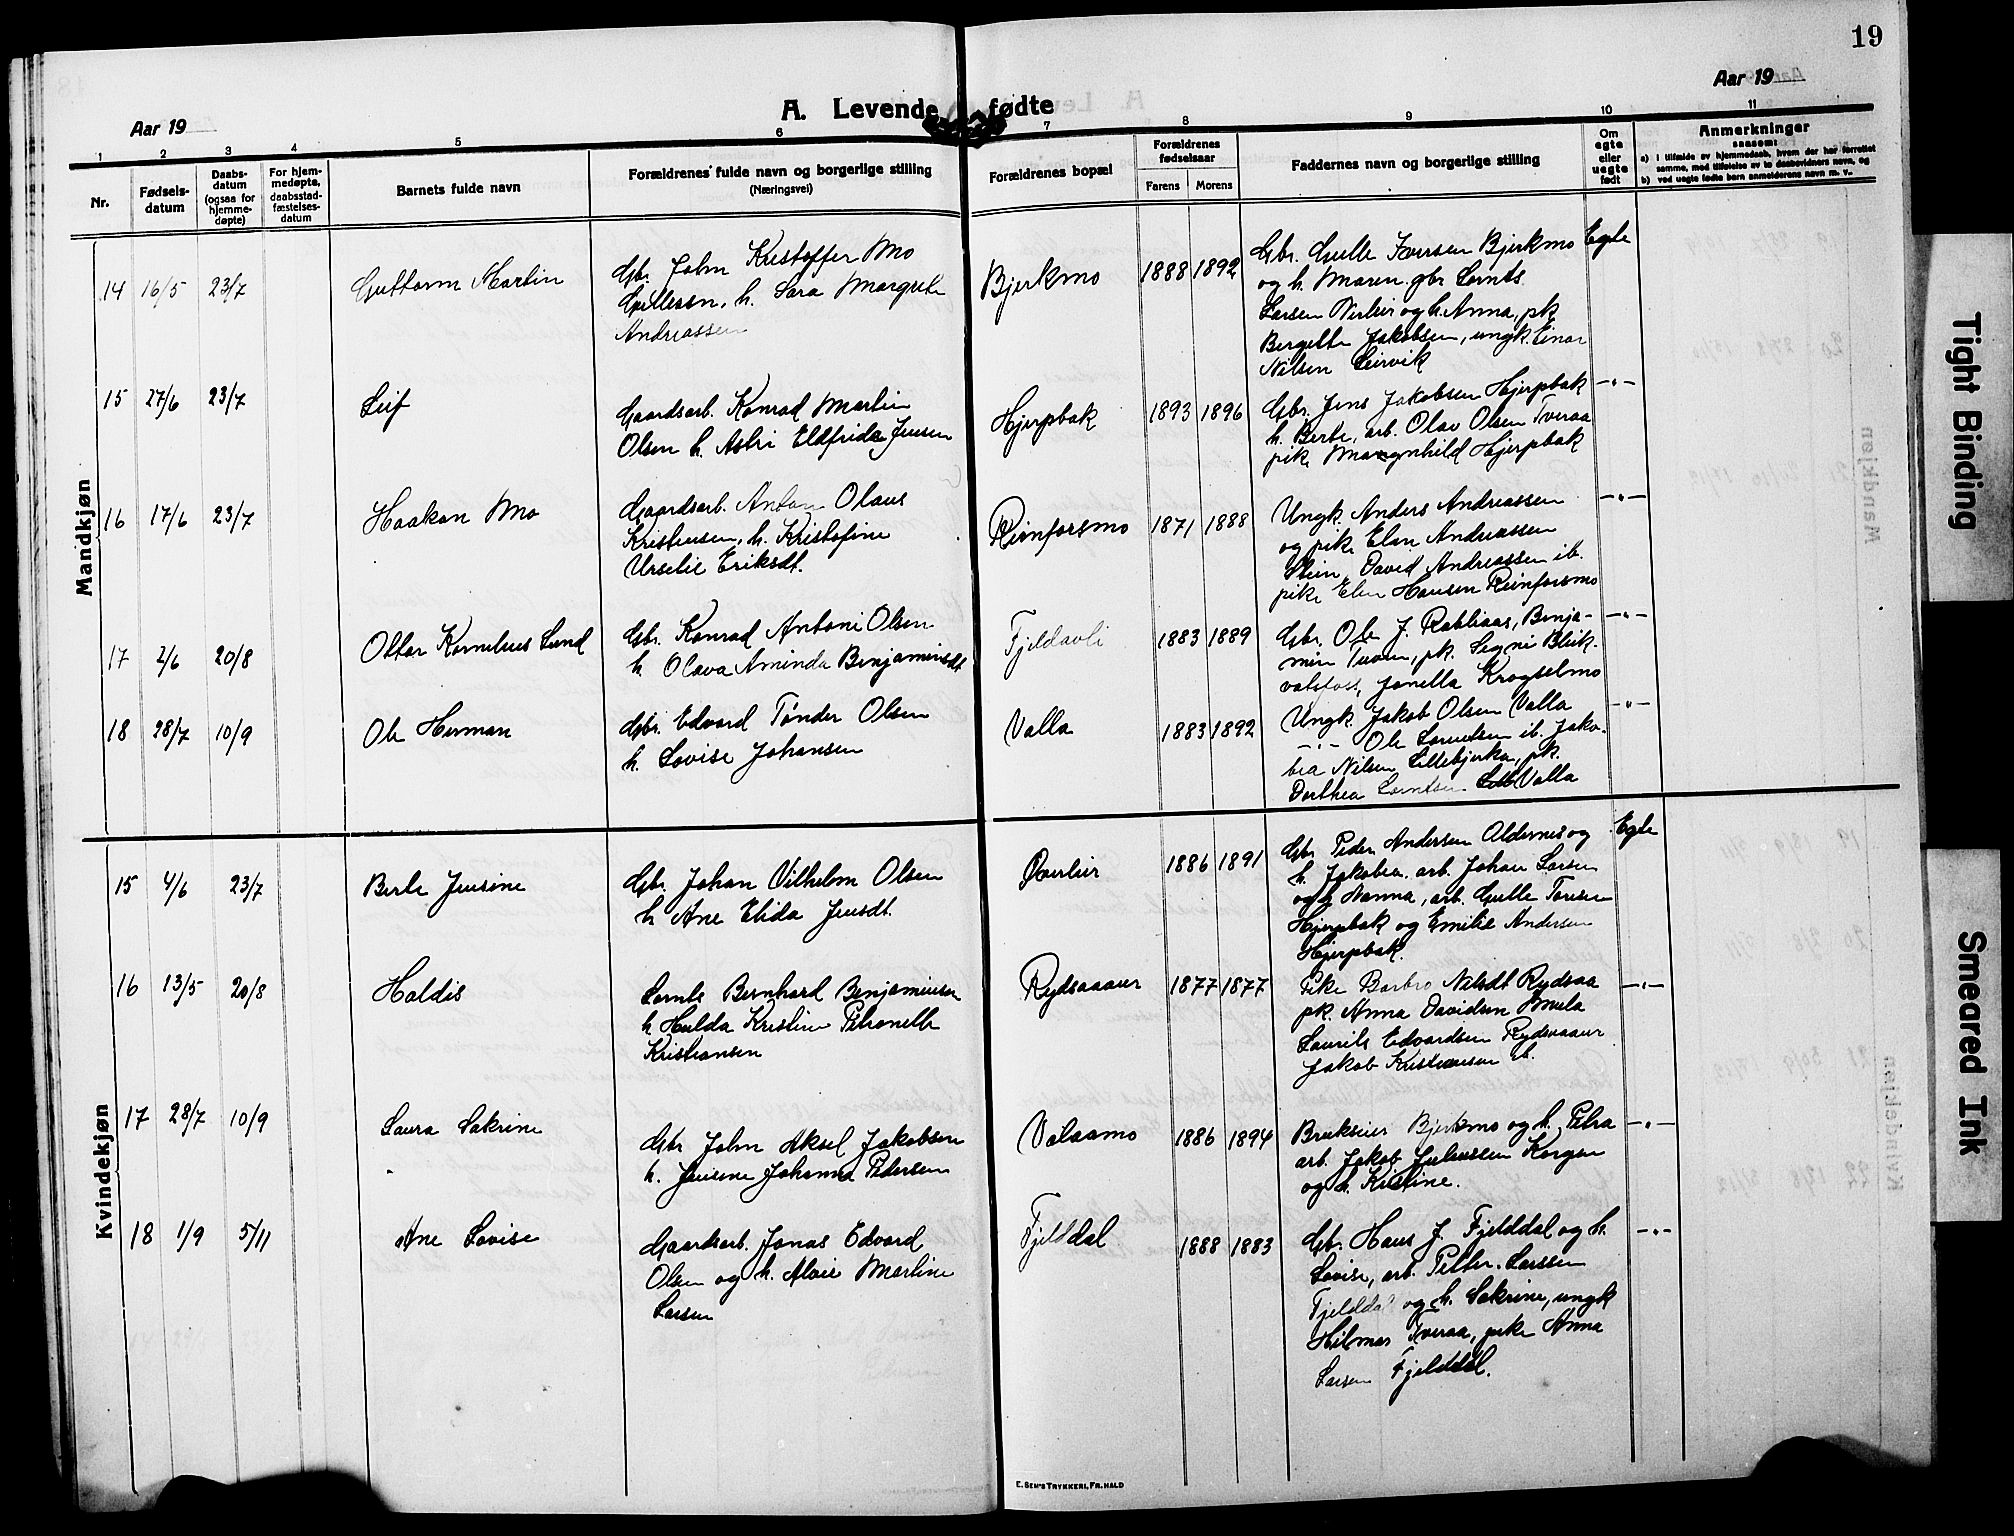 19
Aar 19
Aar 19
A. Levende fødte
1 2 3 4 5 6 7 8 9 10 11
Nr.
Fødsels-
datum
Daabs-
datum
(ogsaa for
hjemme-
døpte)
For hjem-
medøpte,
daabsstad-
fæstelses-
datum
Barnets fulde navn
Forældrenes fulde navn og borgerlige stilling
(Næringsvei)
Forældrenes bopæl
Forældrenes
fødselsaar
Farens Morens
Faddernes navn og borgerlige stilling
Om
egte
eller
uegte
født
Anmerkninger
saasom:
a) I tilfælde av hjemmedaab, hvem der har forrettet
samme, med tilføielse av to daabsvidners navn, og
b) ved uegte fødte barn anmelderens navn m. v.
Mandkjøn
14 16/5 23/7 Guttorm Martin
Gbr. John Kristoffer Mo
Gullesen, h. Sara Margrete
Andreassen
Bjerkmo 1888 1892
Gbr. Gulle Larsen Bjerkmo
og h. Maren gbr Lornts
Larsen og h. Anna, pk
Bergette Jakobsen, ungk. Einar
Nilsen Leirvik
Egte
15 27/6 23/7 Leif
Gaardsarb. Konrad Martin
Olsen h. Astri Eldfrida Jensen
Hjerpbak 1893 1896
Gbr. Jens Jakobsen Hjerpbak
h. Berte, arb. Olav Olsen Tveraa
pike Mangnhild Hjerpbak
—"—
16 17/6 23/7 Haakon Mo
Gaardsarb. Anton Olaus
Kristensen, h. Kristofine
Urselie Eriksdt.
Reinforsmo 1871 1888
Ungk. Anders Andreassen
og pike Elen Andreassen
Stien, David Andreassen ib.
pike Elen Hansen Reinforsmo
—"—
17 2/6 20/8 Ottar Kornelius Lund
Gbr. Konrad Antoni Olsen
h. Olava Aminda Benjaminsdt
Fjeldavli 1883 1889
Gbr. Ole J. Rabliaas, Benja-
min Tuven, pk. Signi Bleik-
valsfoss, Jonella Krogselmo
—"—
18 28/7 10/9 Ole Herman
Gbr. Edvard Tønder Olsen
h. Lovise Johansen
Valla 1883 1892
Ungk. Jakob Olsen Valla
—"— Ole Lorentsen ib. Jako-
bea Nilsen Lillebjerka, pk.
Dorthea Lorntsen Valla
—"—
Kvindekjøn
15 4/6 23/7 Berle Jensine
Gbr. Johan Vilhelm Olsen
h. Ane Elida Jensdt.
Øverleir 1886 1891
Gbr Peder Andersen Aldernes og
h. Jakobea. arb. Johan Larsen
og h Nanna, arb. Gulle Toresen
Hjerpbak og Emilie Andersen
Hjerpbak.
Egte
16 13/5 20/8 Haldis
Lornts Bernhard Benjaminsen
h. Hulda Kristine Petronelle
Kristiansen
Rydsaaaur 1877 1877
Pike Barbro Nilsdt Rydsaa
pk. Anna Davidsen Smula
Laurits Edvardsen Rydsaaaur
Jakob Kristiansen ib.
—"—
17 28/7 10/9 Laura Sakrine
Gbr John Aksel Jakobsen
h. Jensine Johanna Pedersen
Valaamo 1886 1894
Brukseier Bjerkmo og h. Petra
arb. Jakob Juliussen Korgen
og h. Kristine.
—"—
18 1/9 5/11 Ane Lovise
Gaardsarb. Jonas Edvard
Olsen og h. Alvie Martine
Larsen
Fjelddal 1888 1883
Gbr. Hans J. Fjelddal og h.
Lovise, arb. Petter Larssen
Fjelddal og h. Sakrine, ungk
Hilmar Tveraa, pike Anna
Larsen Fjelddal.
—"—
E. SEM'S TRYKKERI, FR.HALD
Tight Binding
Smeared Ink